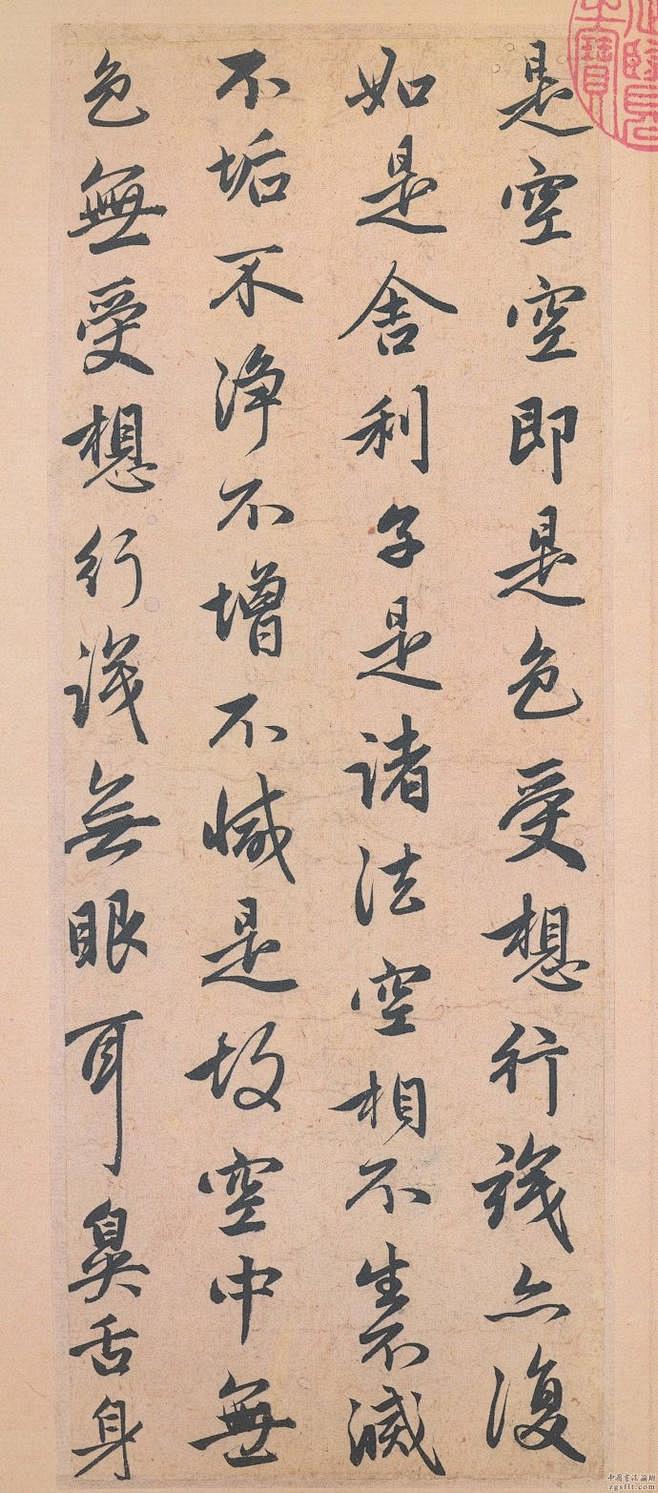 是空空即是色受想行識亦復
如是舍利子是諸法空相不生不滅
不垢不淨不增不減是故空中無
色無受想行識無眼耳鼻舌身
zgsflt.com